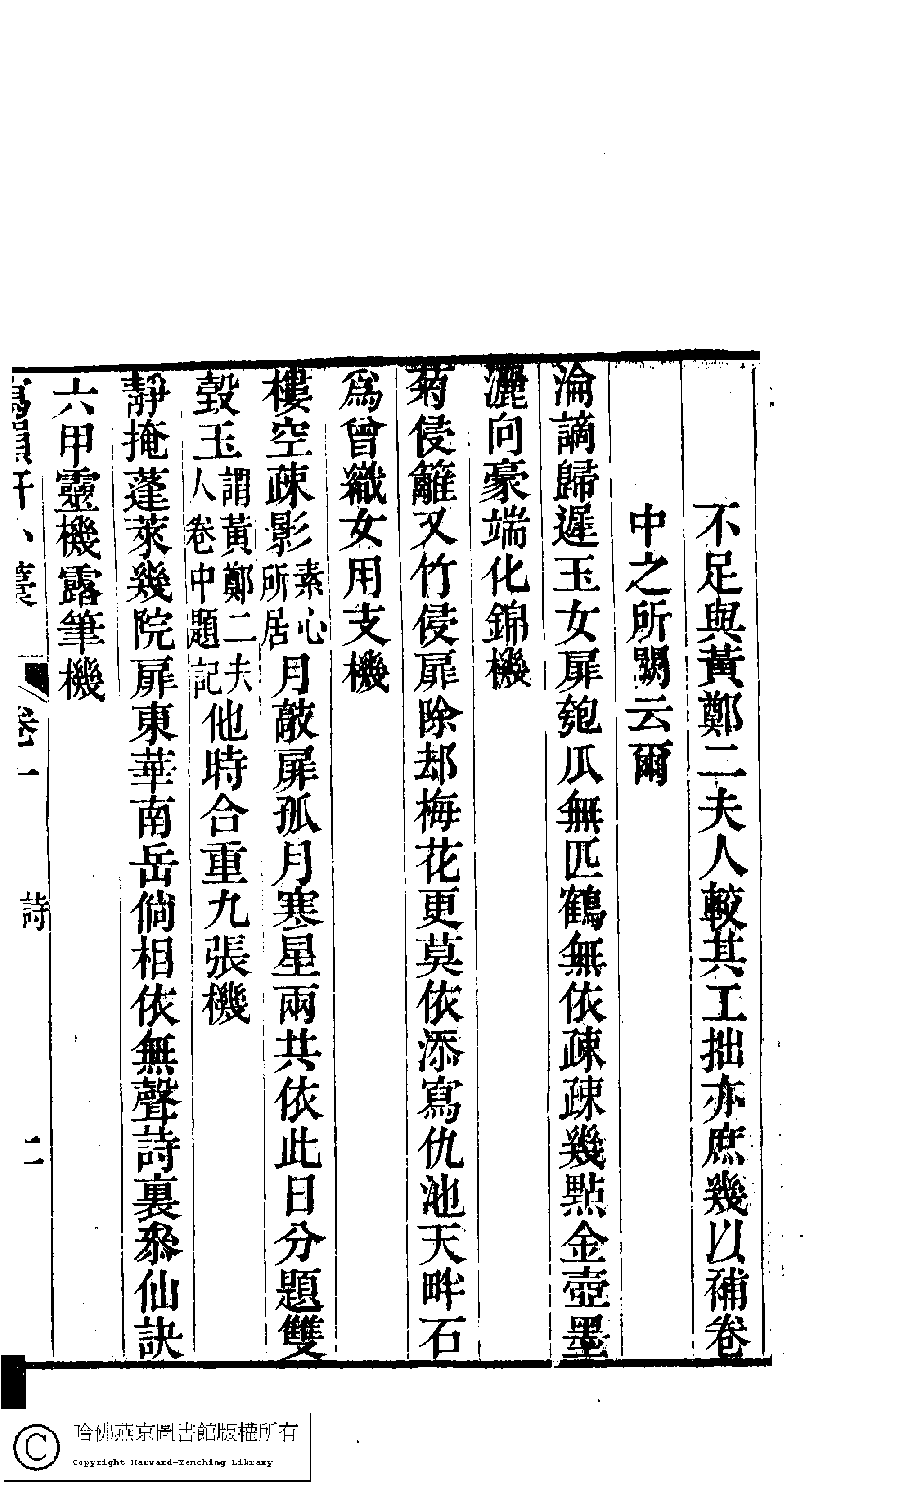 不足與黃鄭二夫人較其工拙亦庶幾以補卷
中之所闕云爾
淪謫歸遲玉女扉匏瓜無匹鶴無依疎疎幾點金壺墨
灑向豪端化錦機
菊侵籬又竹侵扉除却梅花更莫依添寫仇池天畔石
爲曾織女用支機
樓空疎影素心所居月敲扉孤月寒星兩共依此日分題雙
瑴玉謂黃鄭二夫人卷中題記他時合重九張機
靜掩蓬萊幾院扉東華南岳倘相依無聲詩裏叅仙訣
六甲靈機露筆機
韻軒小藁 卷一 詩 二
哈佛燕京圖書館版權所有
Copyright Harvard-Yenching Library